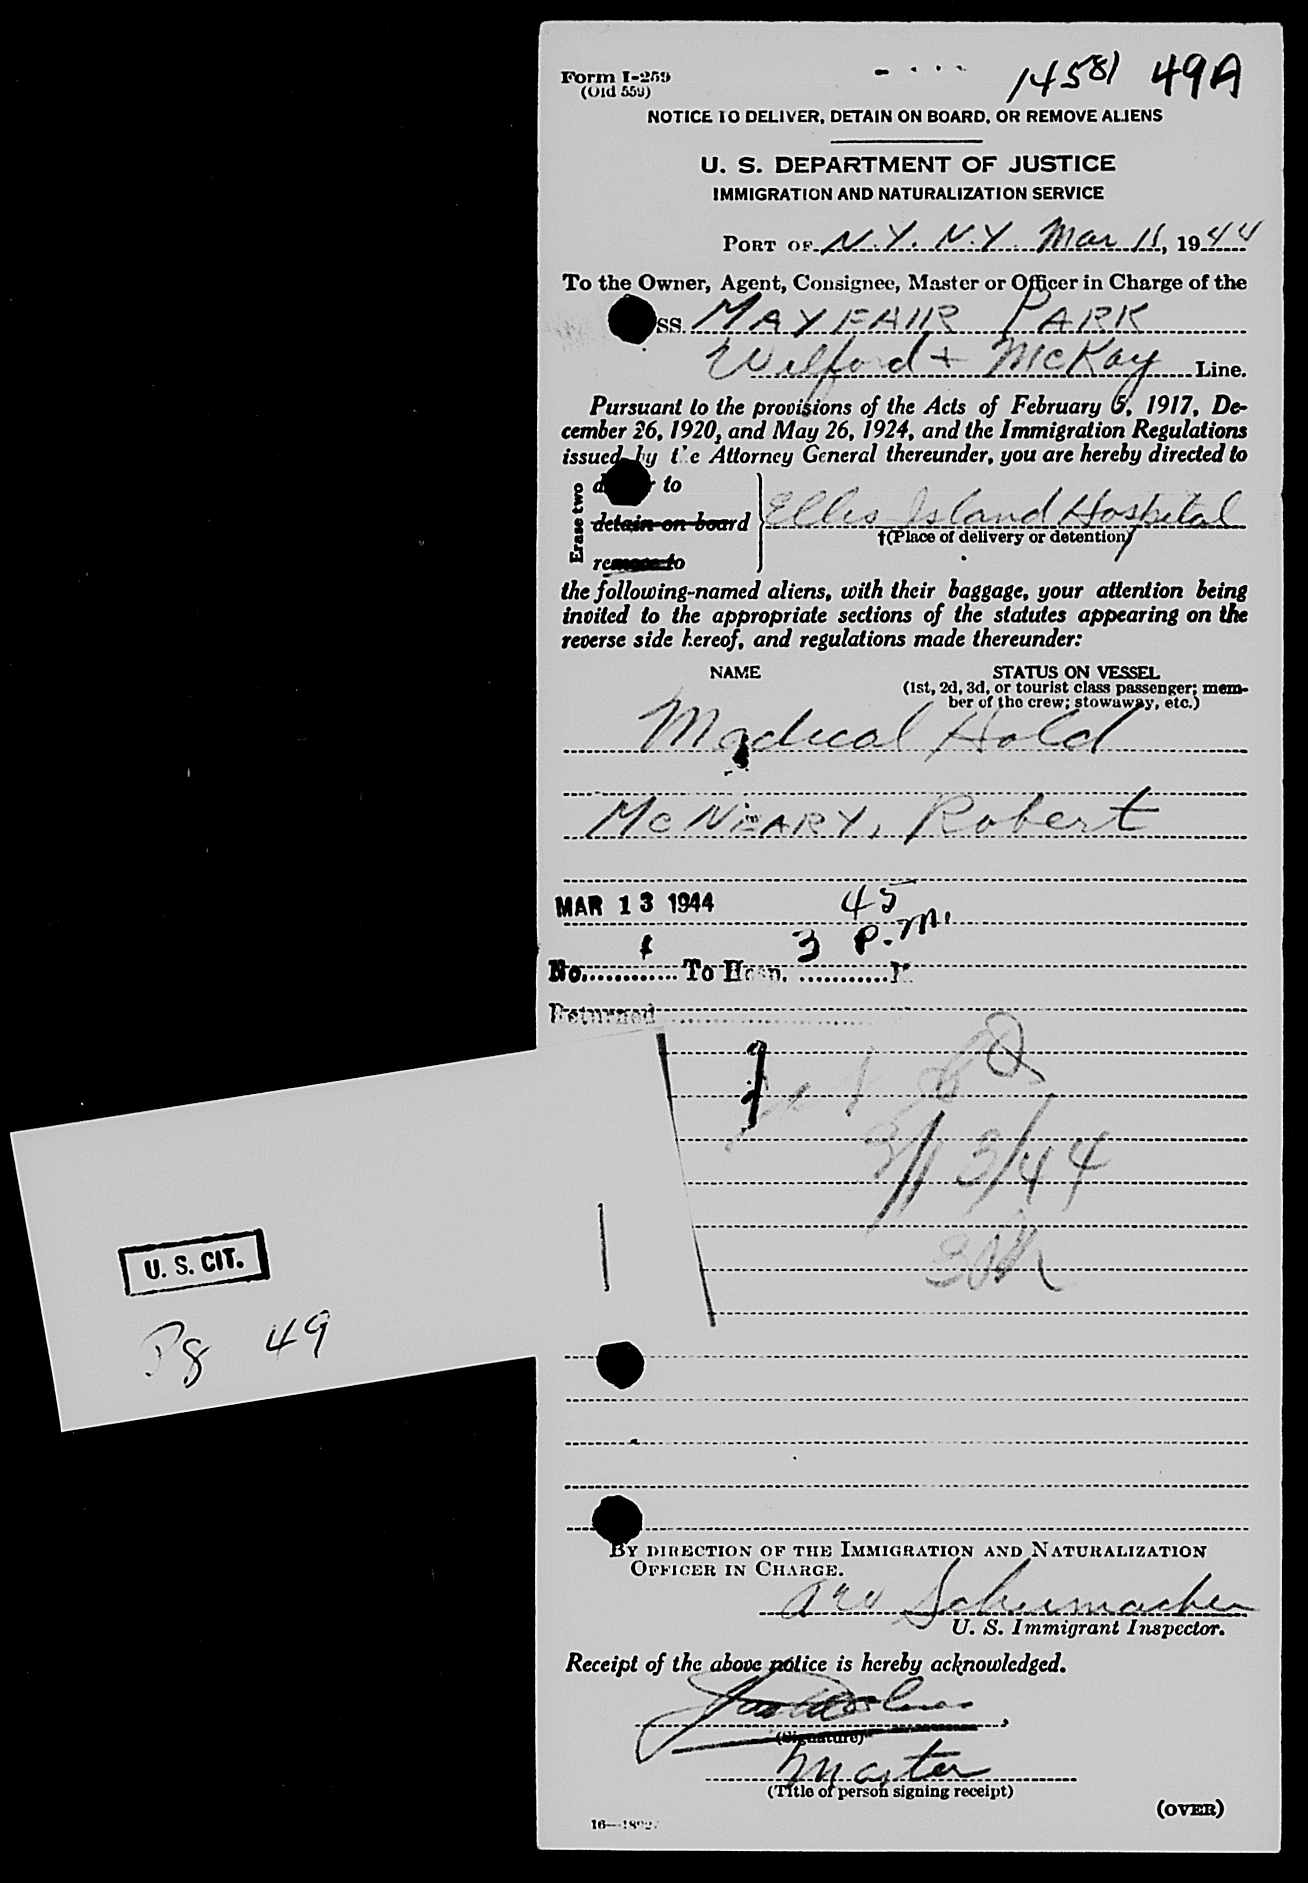 Form I-259
(Old 559)
14581 49A
NOTICE TO DELIVER, DETAIN ON BOARD, OR REMOVE ALIENS
U. S. DEPARTMENT OF JUSTICE
IMMIGRATION AND NATURALIZATION SERVICE
PORT OF N.Y. N.Y. Mar 11, 1944
To the Owner, Agent, Consignee, Master or Officer in Charge of the
SS. MAYFAIR PARK
Wilford + McKay Line.
Pursuant to the provisions of the Acts of February 5, 1917, De-
cember 26, 1920, and May 26, 1924, and the Immigration Regulations
issued by the Attorney General thereunder, you are hereby directed to
Erase two
to
detain on board
remove to
Ellis Island Hospital
†(Place of delivery or detention)
the following-named aliens, with their baggage, your attention being
invited to the appropriate sections of the statutes appearing on the
reverse side hereof, and regulations made thereunder:
NAME
STATUS ON VESSEL
(1st, 2d, 3d, or tourist class passenger; mem-
ber of the crew; stowaway, etc.)
Medical Hold
McNEARY, Robert
MAR 13 1944
45
3 P.M.
No. 1 To Hosp. M
Returned
3/13/44
U. S. CIT.
Pg 49
BY DIRECTION OF THE IMMIGRATION AND NATURALIZATION
OFFICER IN CHARGE.
Schumacher
U. S. Immigrant Inspector.
Receipt of the above notice is hereby acknowledged.
(Signature)
Master
(Title of person signing receipt)
(OVER)